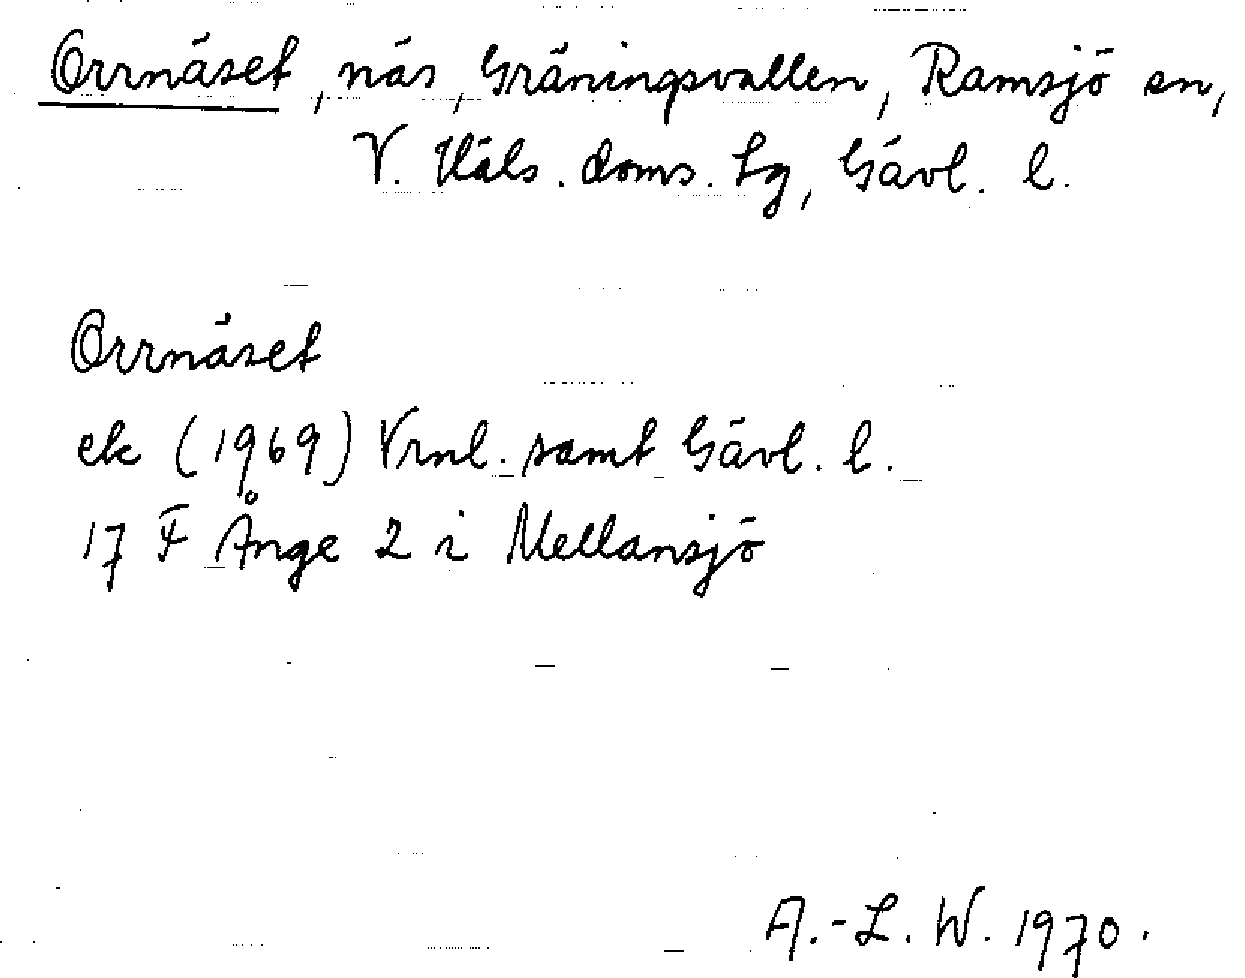 Orrnäset, näs, Gräningsvallen, Ramsjö sn,
V. Häls. doms. Lg, Gävl. l.
Orrnäset
ek (1969) Vrnl. samt Gävl. l.
17 F Ånge 2 i Mellansjö
A.-L. W. 1970.